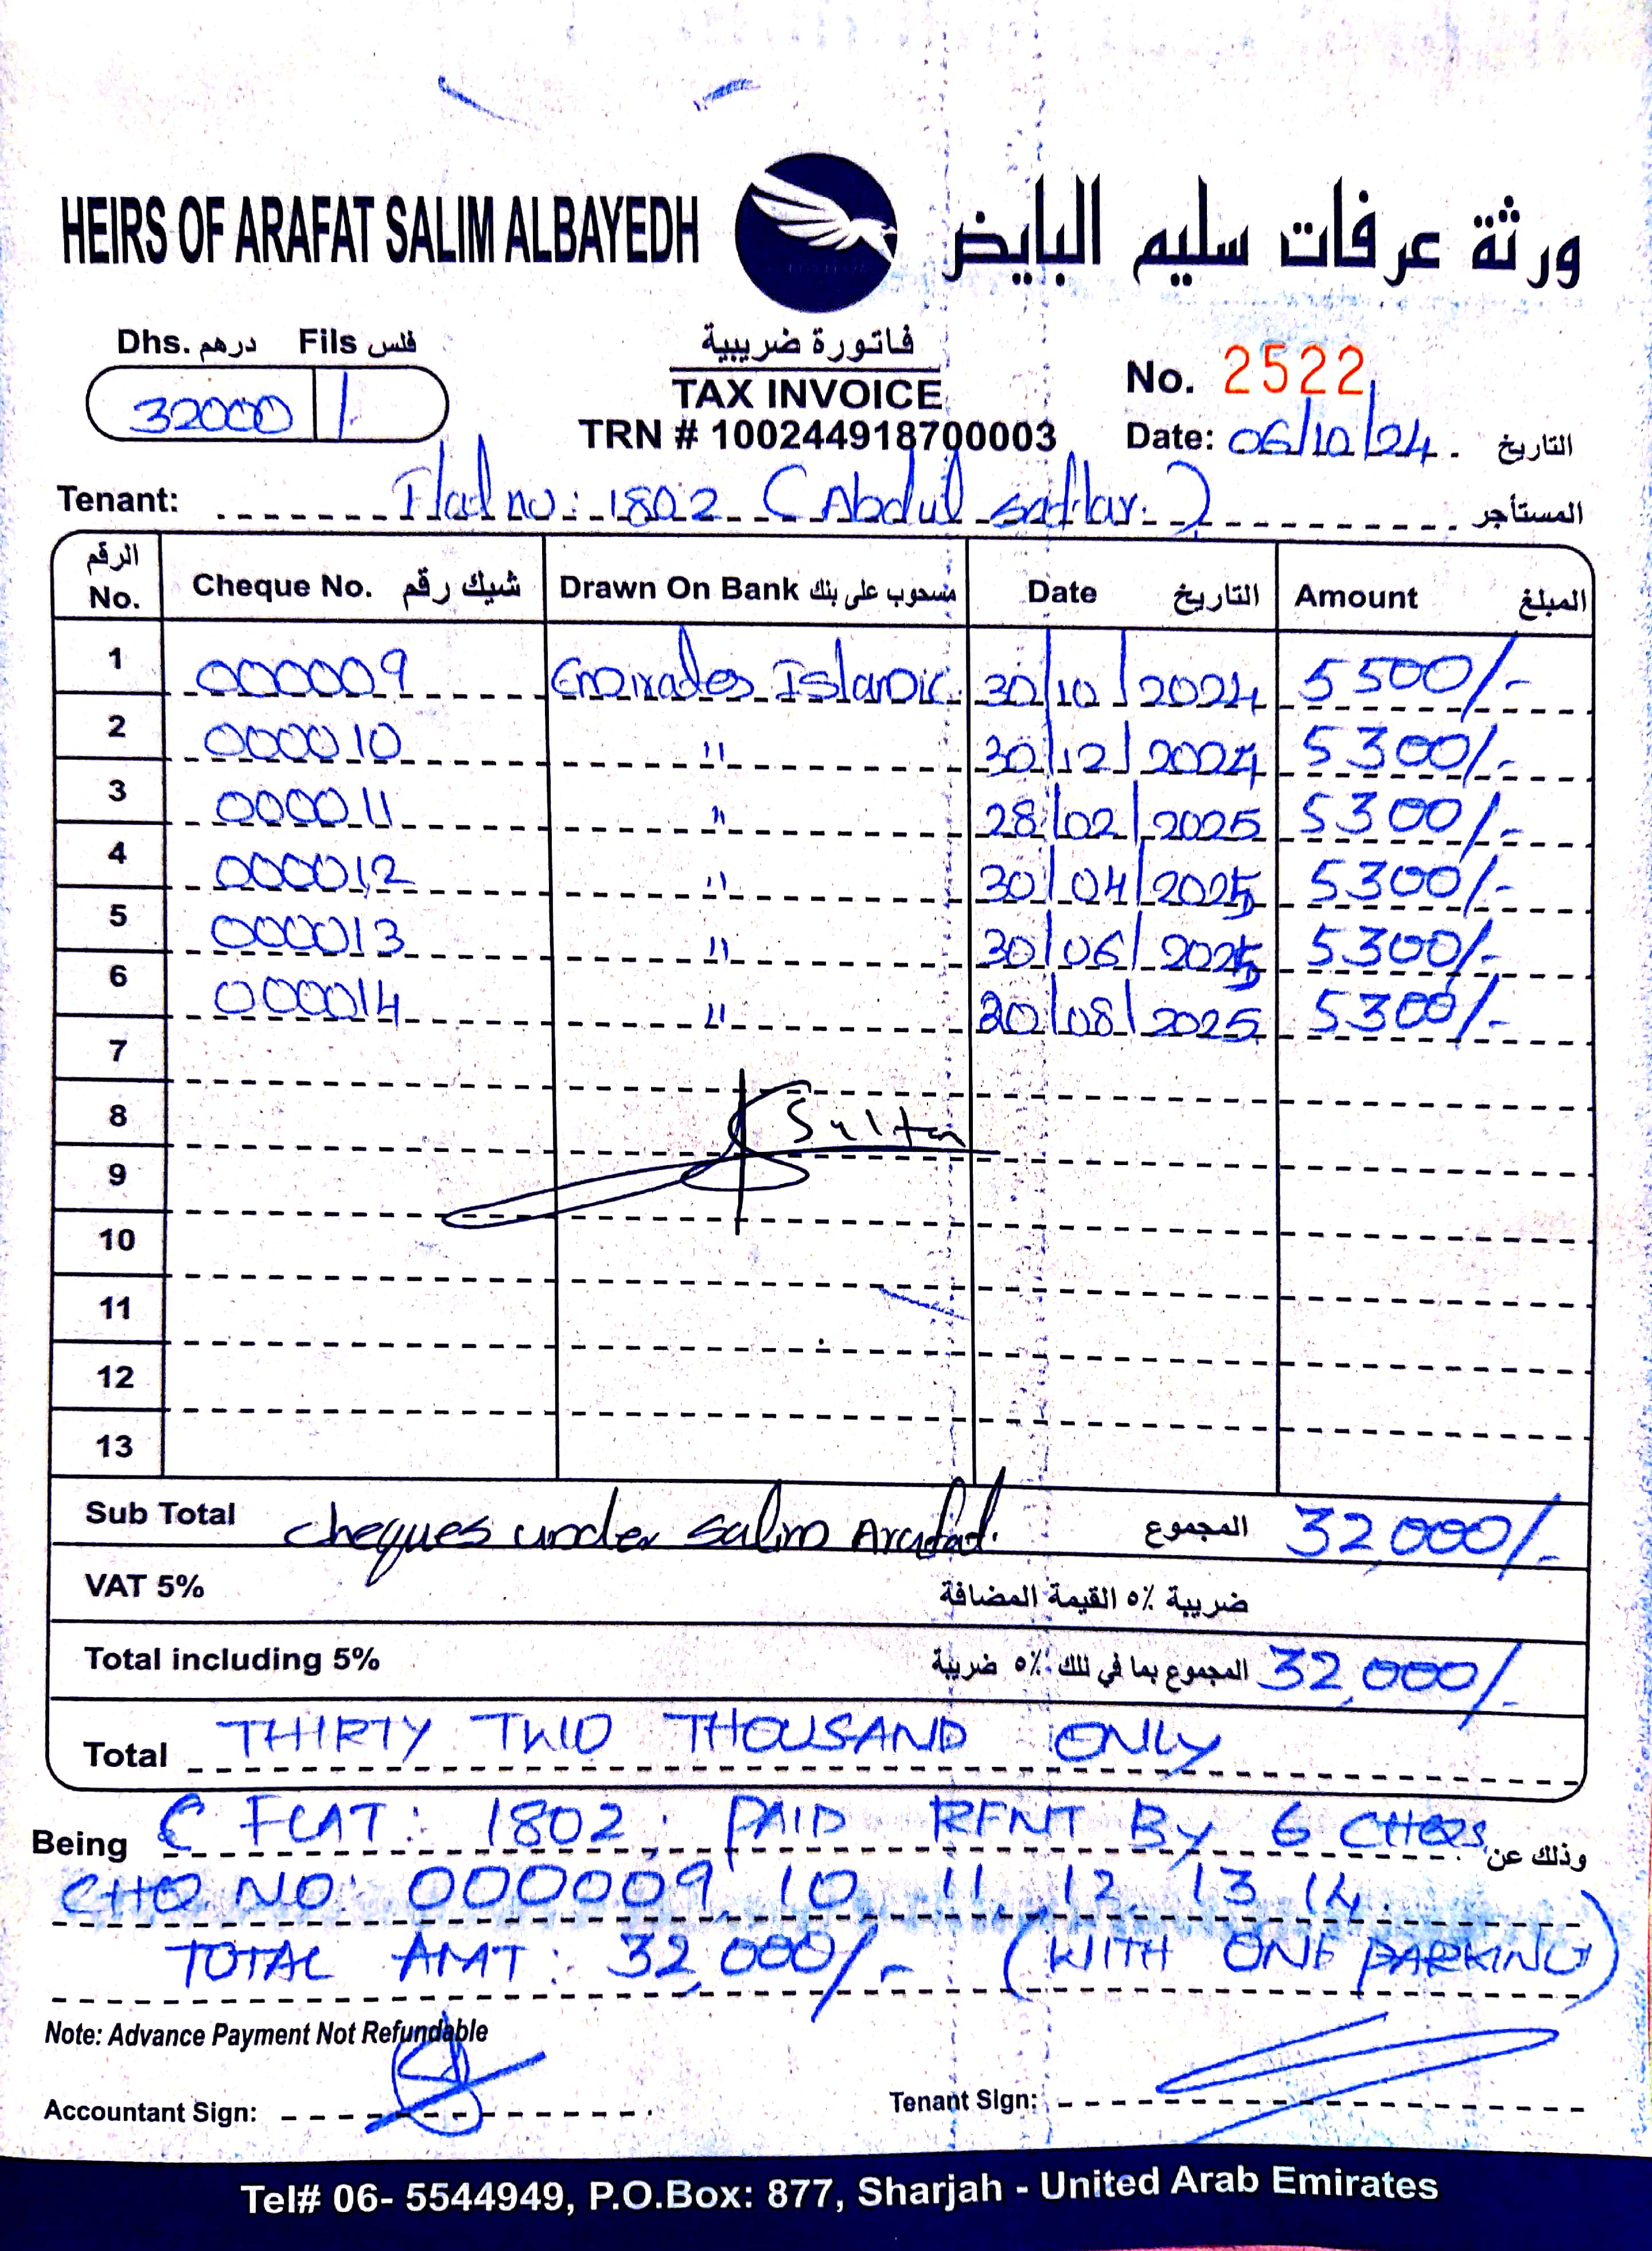 HEIRS OF ARAFAT SALIM ALBAYEDH ورثة عرفات سليم البايض
Dhs. درهم Fils فلس
32000 /
فاتورة ضريبية
TAX INVOICE
TRN # 100244918700003
No. 2522
Date: 06/10/24. التاريخ
Tenant: Flat no: 1802 (Abdul sattar.) المستأجر
الرقم No. Cheque No. شيك رقم Drawn On Bank مسحوب على بنك Date التاريخ Amount المبلغ
1 000009 Emirates Islamic 30/10/2024 5500/-
2 000010 " 30/12/2024 5300/-
3 000011 " 28/02/2025 5300/-
4 000012 " 30/04/2025 5300/-
5 000013 " 30/06/2025 5300/-
6 000014 " 30/08/2025 5300/-
7
8 Sultan
9
10
11
12
13
Sub Total cheques under Salim Arafat. المجموع 32,000/-
VAT 5% ضريبة ٥٪ القيمة المضافة
Total including 5% المجموع بما في ذلك ٥٪ ضريبة 32,000/-
Total THIRTY TWO THOUSAND ONLY
Being FLAT: 1802. PAID RENT By 6 CHQS وذلك عن
CHQ NO: 000009, 10, 11, 12, 13, 14.
TOTAL AMT: 32,000/- (WITH ONE PARKING)
Note: Advance Payment Not Refundable
Accountant Sign: Tenant Sign:
Tel# 06- 5544949, P.O.Box: 877, Sharjah - United Arab Emirates